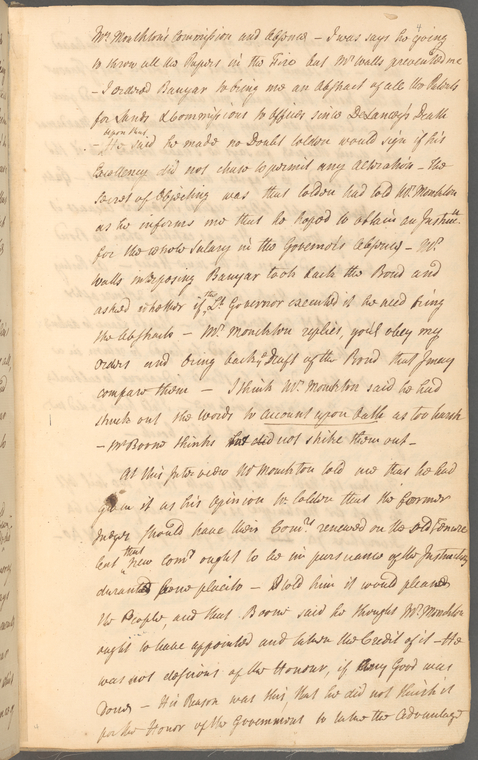 Mr. Monckton's Commission and Absence – I was says he going
to throw all the Papers in the Fire but Mr Walls prevented me
– I ordered Banyar to bring me an Abstract of all the Patents
for Lands & Commissions to Offices since DeLancey's Death
upon this
– He said he made no Doubt Colden would sign if his
Excellency did not chuse to permit any Alteration – the
Secret of Objecting was that Colden had told Mr. Monckton
as he informs me that he hoped to obtain an Instruct
for the whole Salary in the Governor's absence – Mr.
Walls interposing Banyar took back the Bond and
asked whether if the Lt Governor executed it he need bring
the Abstracts – Mr. Monckton replies, you'l obey my
Orders and bring back a Draft of the Bond that I may
compare them – I think Mr. Monckton said he had
struck out the words to account upon Oath as too harsh
– Mr Boone thinks he did not strike them out –
At this Interview Mr Monckton told me that he had
given it as his Opinion to Colden that the former
Judges should have their Coms. renewed on the old Tenure
but that new Coms ought to be in pursuance of the Instructions
durante bene placito – I told him it would please
the People, and that Boone said he thought Mr. Monckton
ought to have appointed and taken the Credit of it – He
was not desirous of the Honour, if any Good was
Done – His Reason was this, that he did not think it
for the Honor of the Government to take the Advantage